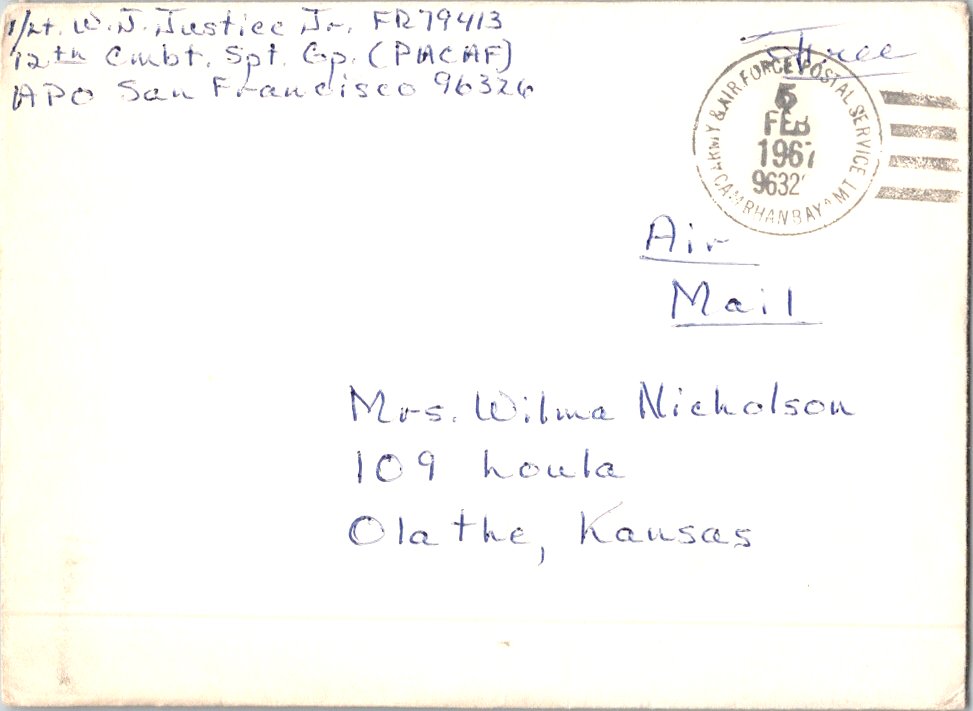 1/Lt. W. J. Justice Jr. FR79413
12th Cmbt. Spt. Gp. (PACAF)
APO San Francisco 96326
Free
ARMY & AIR FORCE POSTAL SERVICE
5
FEB
1967
9632
CAMRHANBAY AMT
Air
Mail
Mrs. Wilma Nicholson
109 Loula
Olathe, Kansas